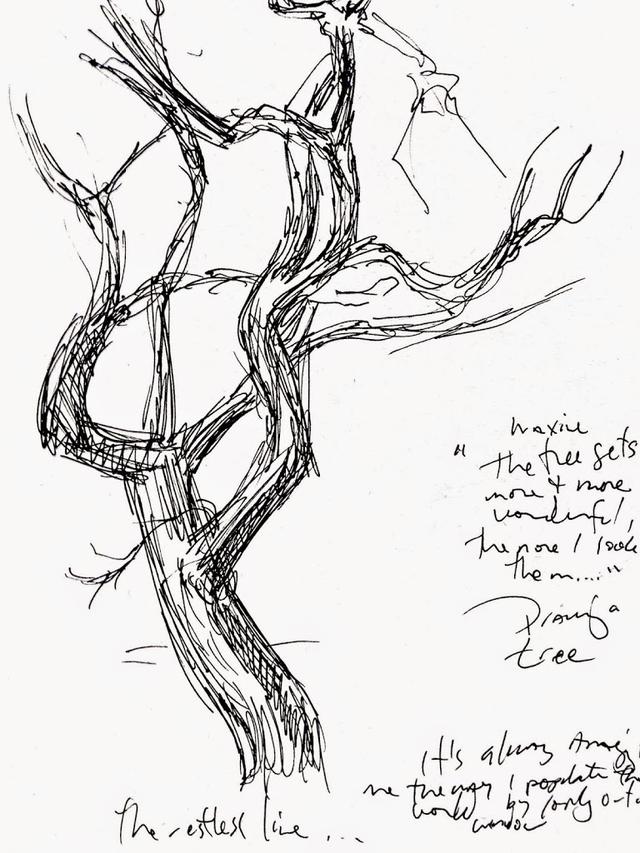 Maxine
"The tree gets
more & more
wonderful,
the more I look
them...."
Drawing a
tree
It's always
me the way I populate the
world by
window
The restless line ...